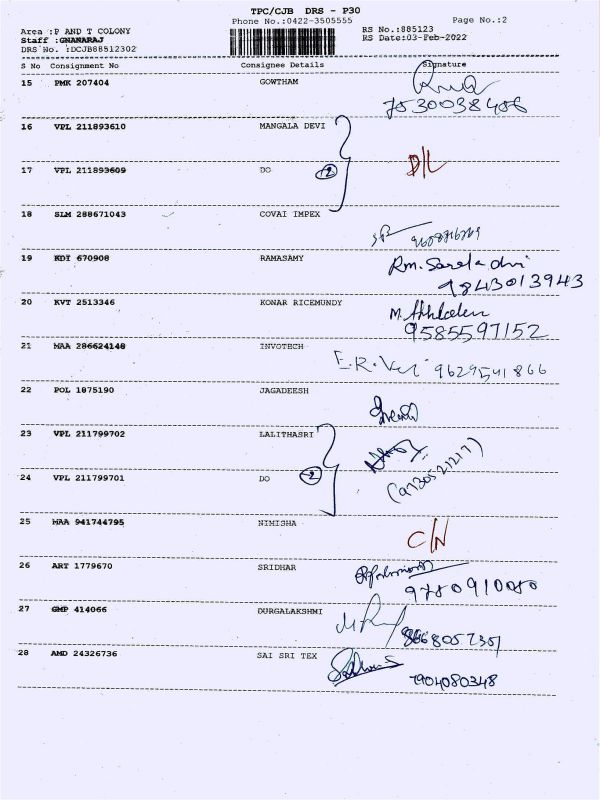 TPC/CJB DRS - P30
Phone No.:0422-3505555 Page No.:2
Area :P AND T COLONY RS No.:885123
Staff :GNANARAJ RS Date:03-Feb-2022
DRS No. :DCJB88512302
S No Consignment No Consignee Details Signature
15 PMK 207404 GOWTHAM
7530038456
16 VPL 211893610 MANGALA DEVI
17 VPL 211893609 DO 2 D/L
18 SLM 288671043 COVAI IMPEX
19 KDI 670908 RAMASAMY Rm. Sarala dvi
9843013943
20 KVT 2513346 KONAR RICEMUNDY
9585597152
21 MAA 286624148 INVOTECH E.R. 9629541866
22 POL 1875190 JAGADEESH
23 VPL 211799702 LALITHASRI
24 VPL 211799701 DO 2
25 MAA 941744795 NIMISHA C/N
26 ART 1779670 SRIDHAR
9780910080
27 GMP 414066 DURGALAKSHMI
28 AMD 24326736 SAI SRI TEX
7904080348